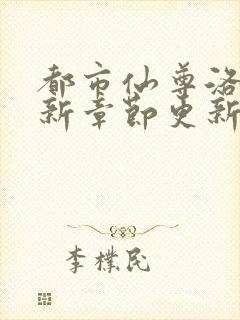 都市仙尊洛
新章節更新
李樸民